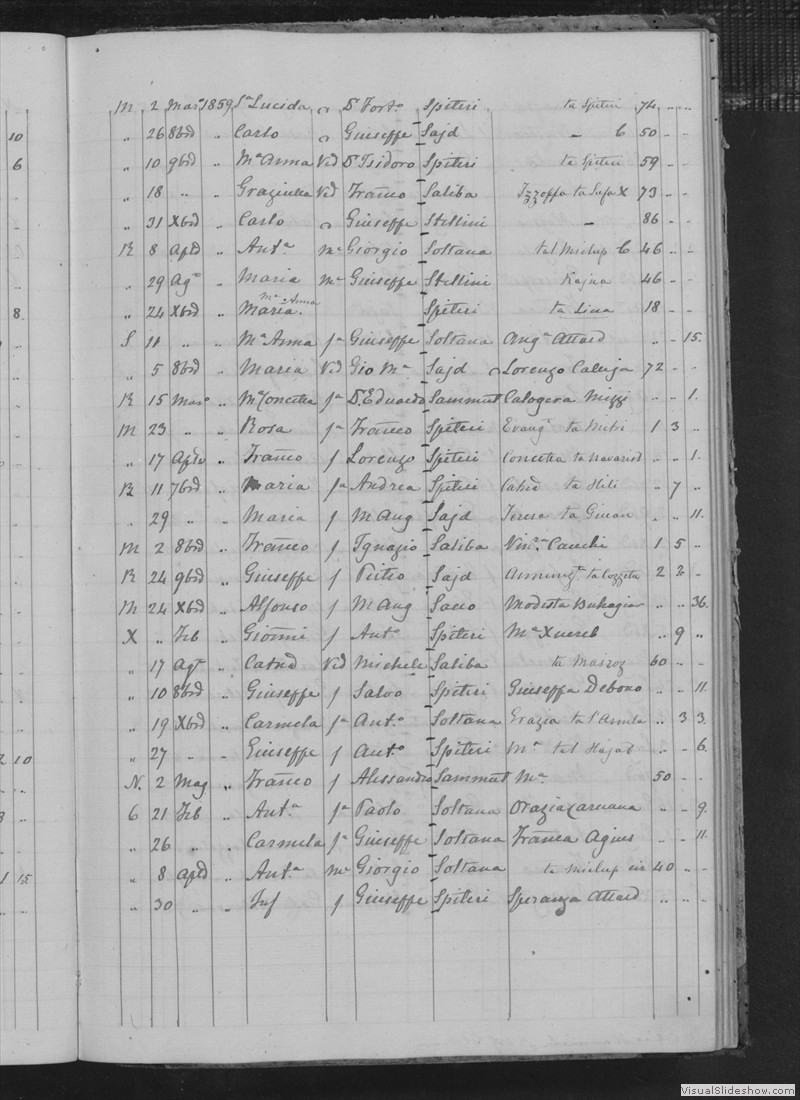 10
6
8
2 10
1 15
M 2 Mar° 1859 Sra Lucida Dr Fort° Spiteri ta Spiteri 74 " "
" 26 8bre " Carlo Giuseppe Sajd - C 50 - -
" 10 9bre " Ma Anna Ved Dr Isidoro Spiteri ta Spiteri 59 - -
" 18 " " Graziulla Ved Franco Saliba X 73 - -
" 31 Xbre " Carlo Giuseppe Stellini - 86 - -
R 8 Aple " Anta me Giorgio Soltana tal Mielup C 46 - -
" 29 Ago " Maria me Giuseppe Stellini Kajna 46 - -
Ma Anna
" 24 Xbre " Maria. Spiteri ta Lina 18 - -
S 11 " " Ma Anna fa Giuseppe Soltana Anga Attard " - 15.
" 5 8bre " Maria Ved Gio Ma Sajd Lorenzo Calleja 72 - -
R 15 Mar° " Ma Concetta fa Dr Eduardo Sammut Calogera Mizzi " " 1.
M 23 " " Rosa fa Franco Spiteri Evanga ta Metri 1 3 "
" 17 Aple " Franco f Lorenzo Spiteri Concetta ta Navarod " " 1.
R 11 7bre " Maria fa Andrea Spiteri Catnd ta Hili " 7 "
" 29 " " Maria f M Ang Sajd Teresa ta " " 11.
M 2 8bre " Franco f Ignazio Saliba Vin.a Cauchi 1 5 "
R 24 9bre " Giuseppe f Pietro Sajd ta Cozzeta 2 2 -
M 24 Xbre " Alfonso f M Ang Sacco Modesta Buhagiar " " 36.
X " Feb " Gionni f Ant° Spiteri Ma Xuereb " 9 "
" 17 Ago " Catnd Ved Michele Saliba ta Marzoz 60 - -
" 10 8bre " Giuseppe f Salvo Spiteri Giuseppa Debono " - 11.
" 19 Xbre " Carmela fa Ant° Soltana Grazia ta l'Armla " 3 3.
" 27 " - Giuseppe f Ant° Spiteri Ma tal Hajat " - 6.
N. 2 Mag " Franco f Alessandro Sammut Ma 50 - -
G 21 Feb " Anta fa Paolo Soltana Orazia Caruana " - 9.
" 26 " " Carmela fa Giuseppe Soltana Franca Agius " - 11.
" 8 Aple " Anta me Giorgio Soltana ta Mielup 40 - -
" 30 " " Inf f Giuseppe Spiteri Speranza Attard " " "
VisualSlideshow.com